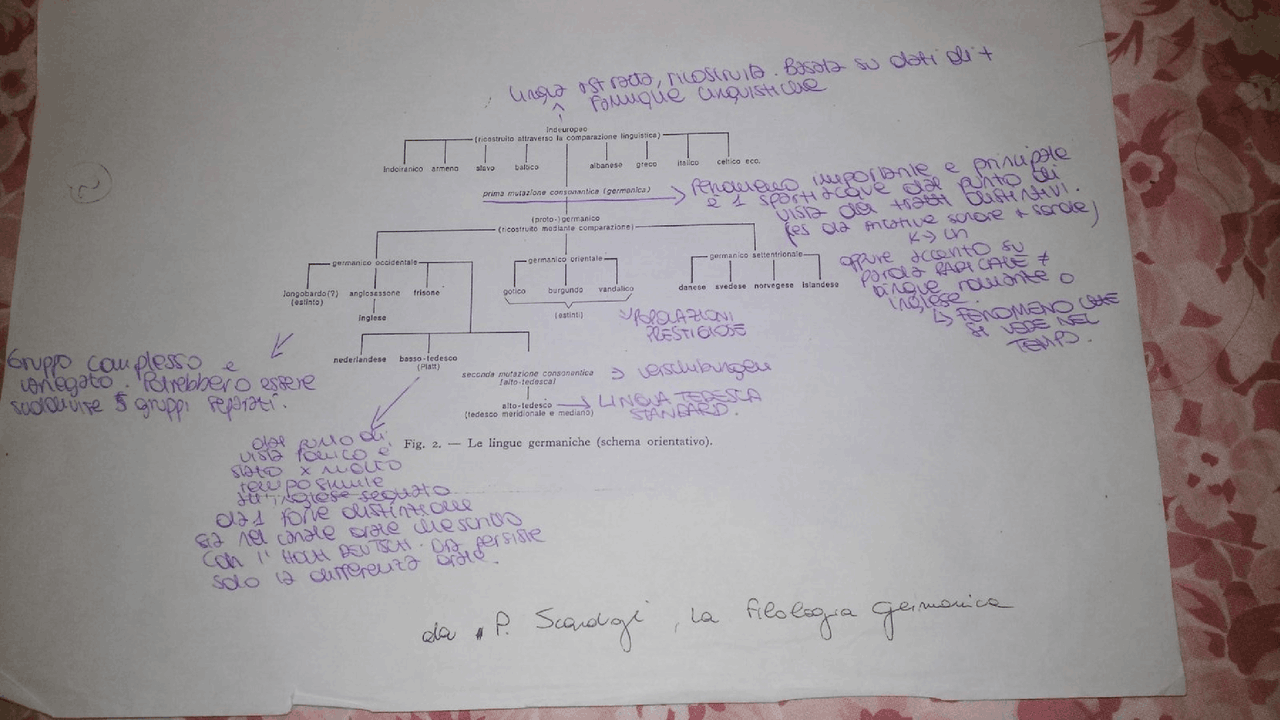 lingua astratta, ricostruita. Basata su dati di +
famiglie linguistiche
indeuropeo
(ricostruito attraverso la comparazione linguistica)
indoiranico armeno slavo baltico albanese greco italico celtico ecc.
prima mutazione consonantica (germanica)
fenomeno importante e principale
e 1 spartiacque dal punto di
vista dei tratti distintivi.
(es da fricative sonore + sorde)
K → ch
oppure accento su
parola RADICALE ≠
lingue romanze o
inglese.
↳ FENOMENO CHE
SI VEDE NEL
TEMPO.
(proto-)germanico
(ricostruito mediante comparazione)
germanico occidentale germanico orientale germanico settentrionale
longobardo(?) anglosassone frisone gotico burgundo vandalico danese svedese norvegese islandese
(estinto) (estinti)
inglese
POPOLAZIONI
PRESTIGIOSE
nederlandese basso-tedesco
(Platt)
Gruppo complesso e
variegato. Potrebbero essere
suddivise 5 gruppi separati.
seconda mutazione consonantica → verschiebungen
(alto-tedesca)
alto-tedesco → LINGUA TEDESCA
(tedesco meridionale e mediano) STANDARD.
Fig. 2. — Le lingue germaniche (schema orientativo).
dal punto di
vista fonico è
stato x molto
tempo simile
all'inglese seguito
da 1 forte distinzione
sia nel canale orale che scritto
con l'HOCH DEUTSCH. Ora persiste
solo la differenza orale.
da P. Scardigli, La filologia germanica